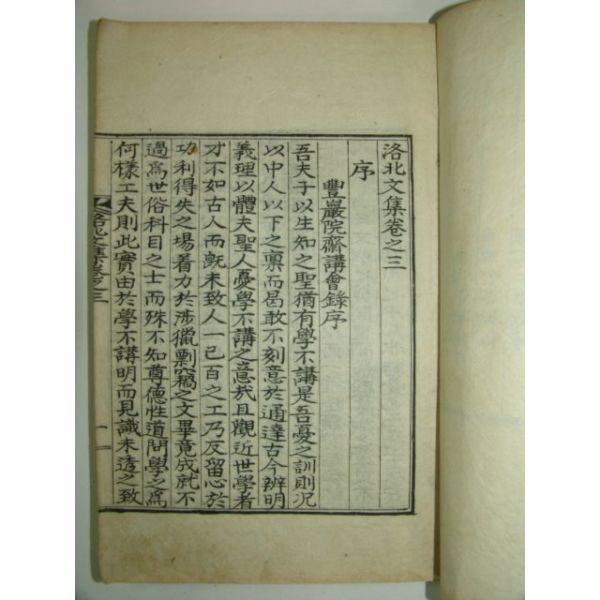 洛北文集卷之三
序
豐巖院齋講會錄序
吾夫子以生知之聖猶有學不講是吾憂之訓則况
以中人以下之禀而曷敢不刻意於通達古今辨明
義理以體夫聖人憂學不講之意哉且觀近世學者
才不如古人而旣未致人一己百之工乃反留心於
功利得失之場着力於涉獵剽竊之文畢竟成就不
過爲世俗科目之士而殊不知尊德性道問學之爲
何樣工夫則此實由於學不講明而見識未透之致
洛北文集卷之三
一